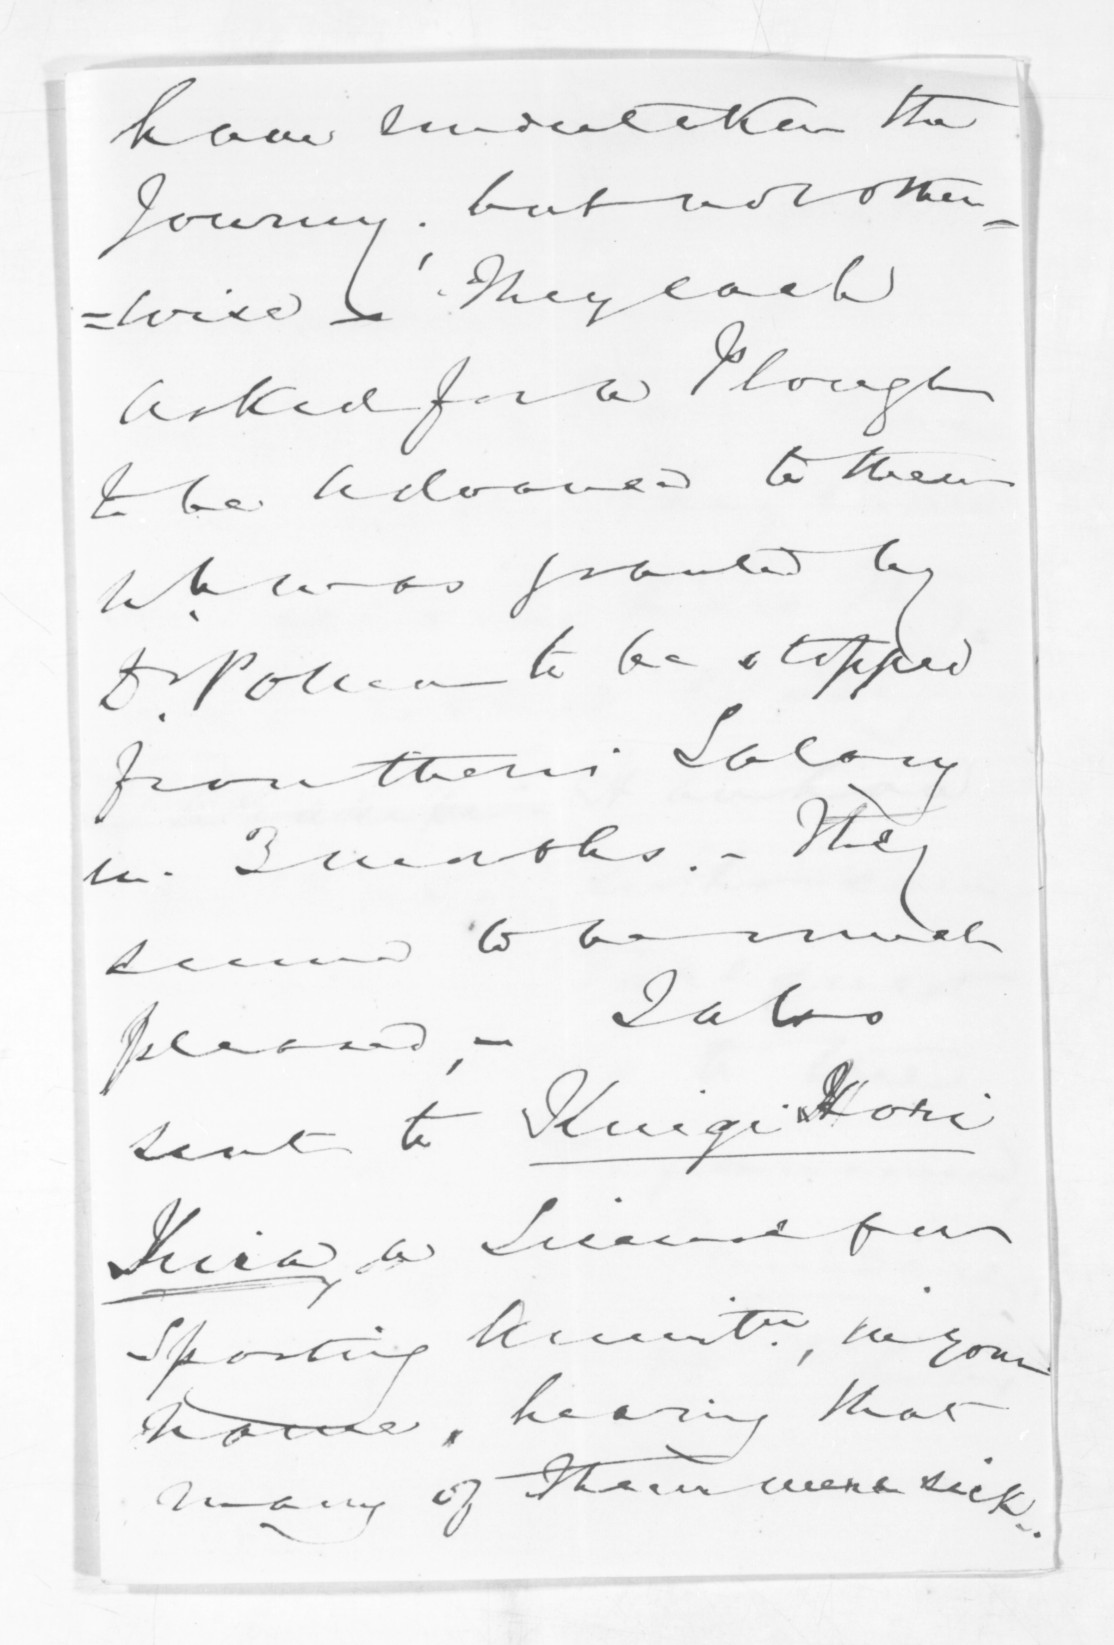 have undertaken the
Journey; but not other=
=wise - They each
asked for a Plough
to be advanced to them
wh. was granted by
Dr. Pollen to be stopped
from their Salary
in 3 months. - They
seemed to be much
pleased, - I also
sent to Kuigi Hori
Kuira, a License for
Sporting Ammitn, in your
name, hearing that
many of them were sick.